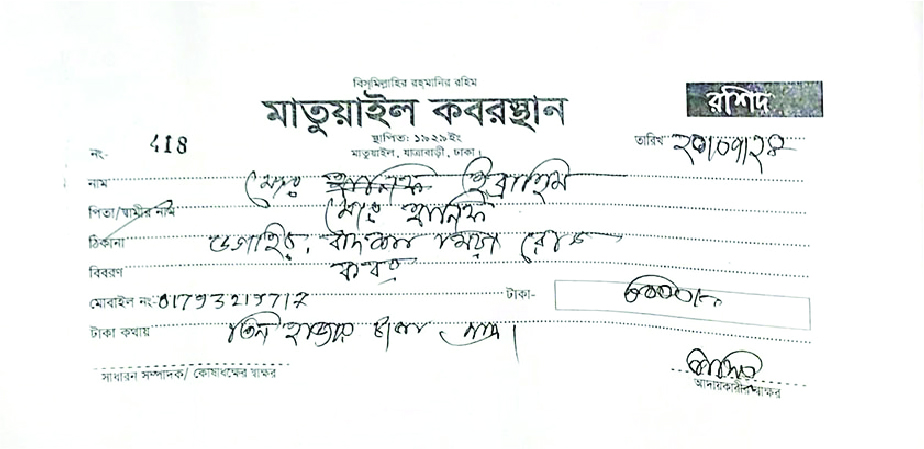 বিসমিল্লাহির রহমানির রহিম
মাতুয়াইল কবরস্থান
রশিদ
স্থাপিত: ১৯২৯ইং
মাতুয়াইল, যাত্রাবাড়ী, ঢাকা।
নং- 418
তারিখ ২০/০৭/২৪
নাম মোঃ হানিফ ইব্রাহিম
পিতা/স্বামীর নাম মোঃ হানিফ
ঠিকানা মিয়া রোড
বিবরণ কবর
মোবাইল নং 01793219717 টাকা- ৩০০০/-
টাকা কথায় তিন হাজার টাকা মাত্র।
সাধারন সম্পাদক/ কোষাধক্ষের স্বাক্ষর
আদায়কারীর স্বাক্ষর